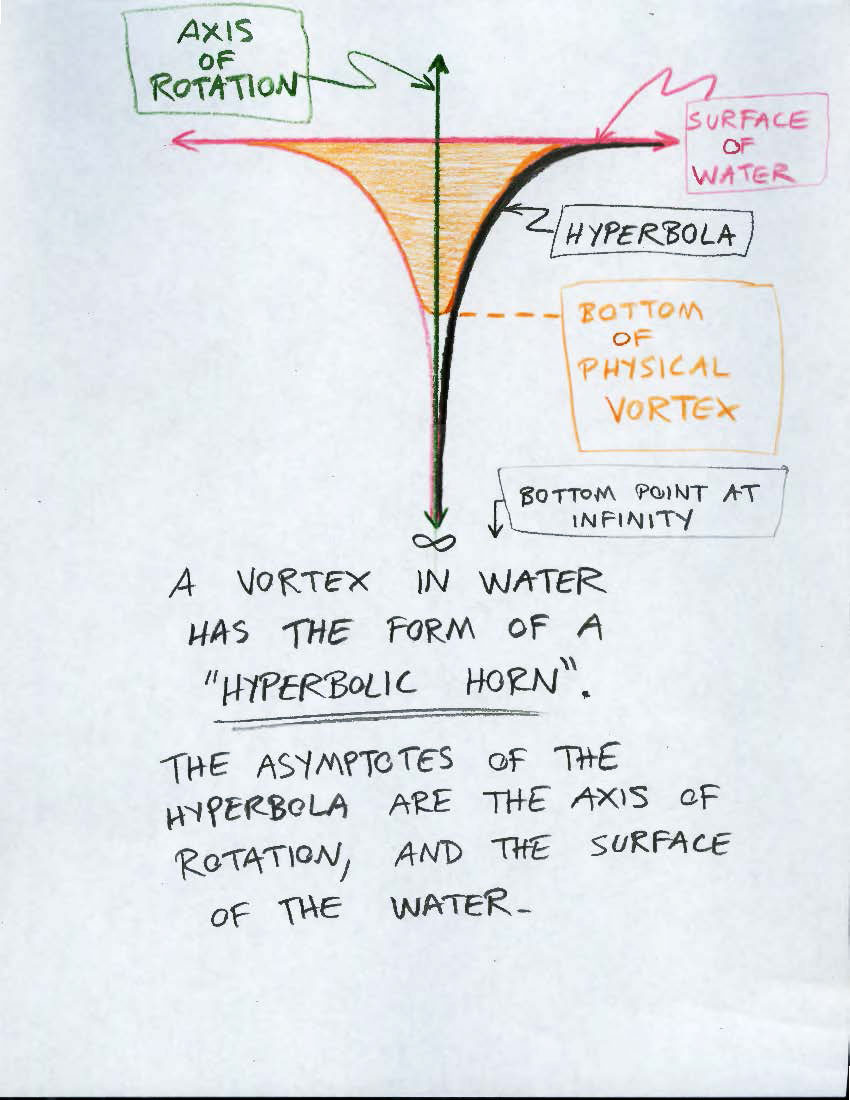 AXIS
OF
ROTATION
SURFACE
OF
WATER
HYPERBOLA
BOTTOM
OF
PHYSICAL
VORTEX
BOTTOM POINT AT
INFINITY
∞
A VORTEX IN WATER
HAS THE FORM OF A
"HYPERBOLIC HORN".
THE ASYMPTOTES OF THE
HYPERBOLA ARE THE AXIS OF
ROTATION, AND THE SURFACE
OF THE WATER.